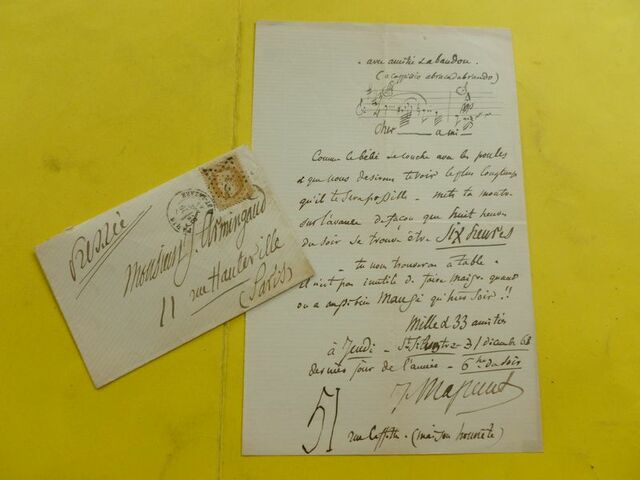 avec amitié & abandon.
(a capriccio abracadabrando)
cher ami
Comme le bébé se couche avec les poules
& que nous désirons te voir le plus longtemps
qu'il te sera possible - mets ta montre
sur l'avance de façon que huit heures
du soir se trouve être six heures
- tu nous trouveras à table -
il n'est pas inutile de faire maigre quand
on a aussi bien mangé qu'hier soir !!
Mille & 33 amitiés
à Jeudi - St Sylvestre - 31 décembre 68
dernier jour de l'année - 6 hes du soir
J. Massenet
51
rue Laffitte. (maison honnête)
Pressée
Monsieur J. Armingaud
11 rue Hauteville
(Paris)